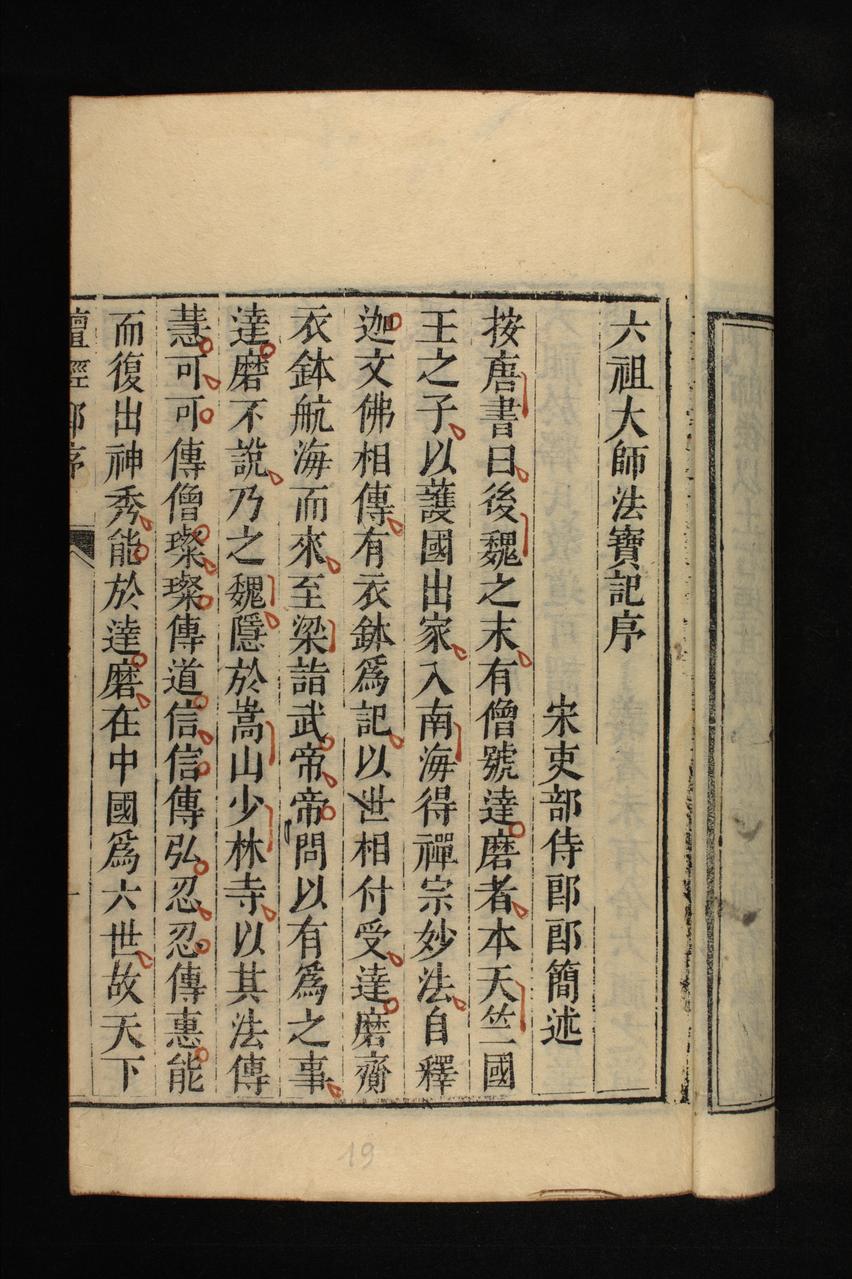 六祖大師法寶記序
宋吏部侍郎郎簡述
按唐書曰後魏之末有僧號達磨者本天竺國
王之子以護國出家入南海得禪宗妙法自釋
迦文佛相傳有衣鉢爲記以世相付受達磨齎
衣鉢航海而來至梁詣武帝帝問以有爲之事
達磨不說乃之魏隱於嵩山少林寺以其法傳
慧可可傳僧璨璨傳道信信傳弘忍忍傳惠能
而復出神秀能於達磨在中國爲六世故天下
19